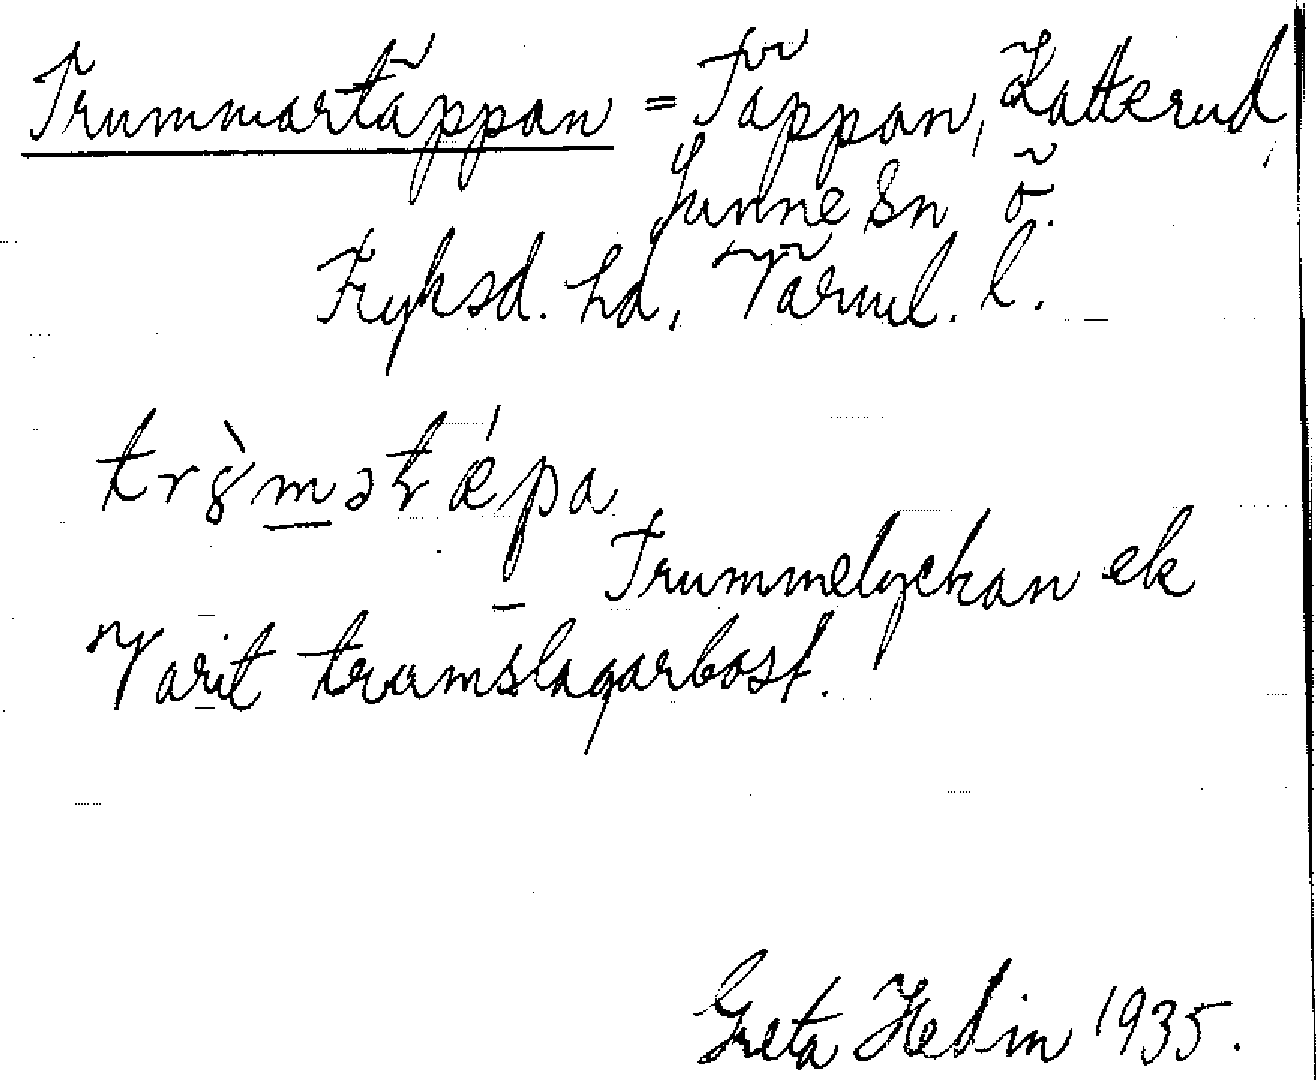 Trummartäppan = Täppan, Katterud,
Gunne Sn Ö.
Fryksd. hd, Värml. l.
Trummelyckan ek
Varit tramslagarbost.
Greta Hedin 1935.